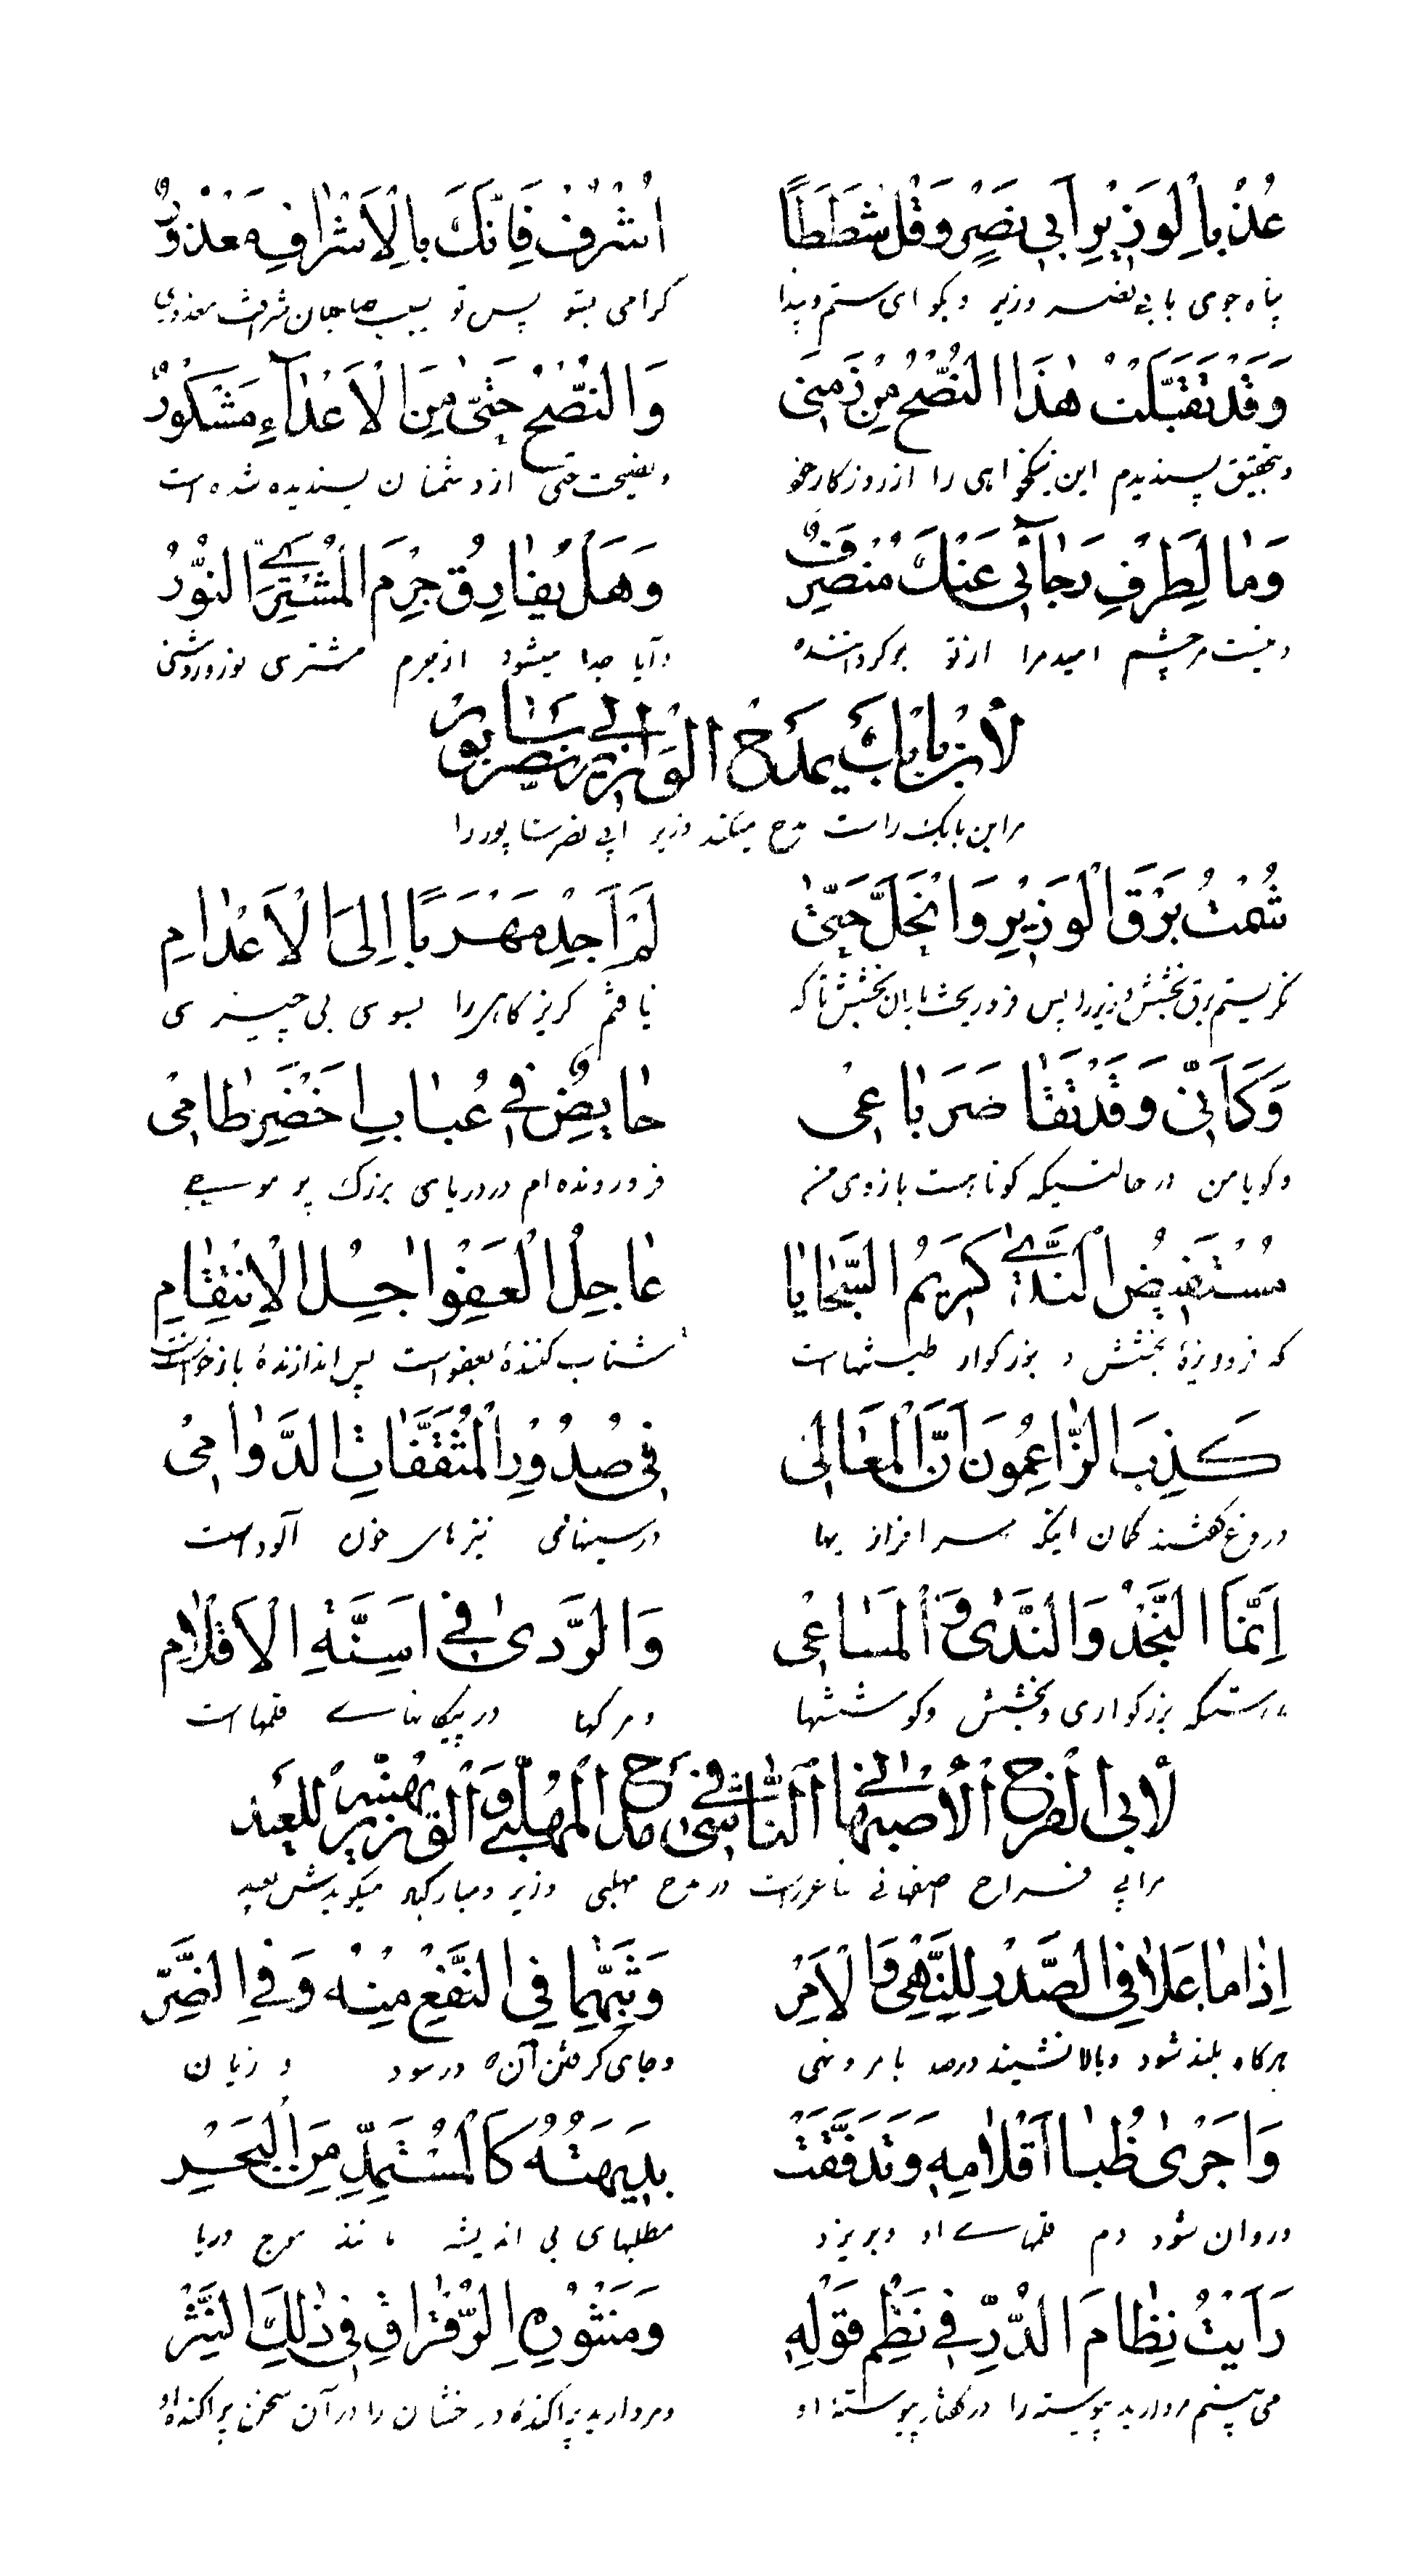 عُذْ بِالْوَزِیرِ اَبِی نَصْرٍ وَقُلْ شَطَطًا اُشْرُفْ فَاِنَّكَ بِالْاَشْرَافِ مَعْذُورٌ
پناه جوی بابی نصر وزیر و بکو ای ستم کرامی بشو پس تو بسبب صاحبان شرافت معذوری
وَقَدْ تَقَبَّلْتُ هٰذَا النُّصْحُ مِنْ زَمَنِی وَالنُّصْحُ حَتّٰی مِنَ الْاَعْدٰآءِ مَشْكُورٌ
و بتحقیق پسندیدم این نیکخواهی را از روزکار خو و نصیحت حتی از دشمنان پسندیده شده است
وَمٰا لِطَرْفِ رَجٰآئِی عَنْكَ مُنْصَرِفٌ وَهَلْ یُفٰارِقُ جِرْمَ الْمُشْتَرِی النُّورُ
و نیست مر چشم امید مرا از تو برکرداننده و آیا جدا میشود از جرم مشتری نور و روشنی
لْأبْنِ بٰابَكَ یَمْدَحُ الْوَزیرَ اَبی نَصْرِ سٰابُورْ
مر ابن بابک راست مدح میکند وزیر ابی نصر شاپور را
شُمْتُ بَرْقَ الْوَزِیْرِ وَانْحَلَّ حَتّٰی لَمْ اَجِدْ مَهْرَبًا اِلَی الْاَعْدٰامِ
نکریستم برق بخشش وزیر را پس فرو ریخت باران بخشش تا که نیافتم کریزکاهی را بسوی بی چیزی
وَكَاَنِّی وَقَدْ تَقٰاصَرَ بٰاعِیْ خٰایِضٌ فِی عُبٰابِ اَخْضَرَ طٰامِیْ
و کویا من در حالتیکه کوتاهست بازوی من فرو رونده ام در دریای بزرک پر موجی
مُسْتَفِیْضُ النَّدٰی كَرِیْمُ السَّجٰایٰا عٰاجِلُ الْعَفْوِ اٰجِلُ الْاِنْتِقٰامِ
که فرو ریزهٔ بخشش و بزرکوار طبیعتهاست شتاب کنندهٔ بعفو است پس اندازندهٔ بازخواست
كَذِبَ الزّٰاعِمُونَ اَنَّ الْمَعٰالِی فِی صُدُوْرِ الْمُثَقَّفٰاتِ الدَّوٰامِیْ
دروغ کفتند کمان اینکه سرافرازیها در سینهای نیزهای خون آلود است
اِنَّمَا النَّجْدُ وَالنَّدٰی وَالْمَسٰاعِیْ وَالرَّدٰی فِی اَسِنَّةِ الْاَقْلٰامِ
بدرستیکه بزرکواری و بخشش و کوششها و مرکها در پیکانهای قلمها است
لْأبِی الْفَرَجِ الْأصْبَهٰانِی النَّاشِی فِی مَدْحِ الْمُهَلَّبِی الْوَزیرِ وَ یُهَنِّیهِ لِلْعیْدِ
مر ابی فرج اصفهانی شاعر راست در مدح مهلبی وزیر و مبارکباد میکویدش بعید
اِذٰامٰا عَلٰا فِی الصَّدْرِ لِلنَّهْیِ وَالْاَمْرِ وَبَثَّهُمٰا فِی النَّفْعِ مِنْهُ وَفِی الضَّرِّ
هرکاه بلند شود و بالا نشیند در صدر بامر و نهی و جای کرفتن آن در سود و زیان
وَاَجْرٰی ظُبٰا اَقْلٰامِهِ وَتَدَفَّقَتْ بَدِیهَتُهُ كَالْمُسْتَمِدِّ مِنَ الْبَحْرِ
و روان شود دم قلمهای او و بریزد مطلبهای بی اندیشه مانند موج دریا
رَاَیْتُ نِظٰامَ الدُّرِّ فِی نَظْمِ قَوْلِهِ وَمَنْثُوْرِهِ الرَّقْرٰاقِ فِی ذٰلِكَ النَّثْرِ
می بینم مروارید پیوسته را در کفتار پیوستهٔ او و مروارید پراکندهٔ درخشان را در آن سخن پراکندهٔ او